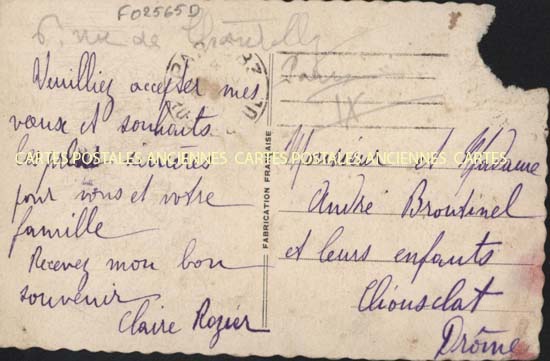 F02565D
6. rue de
Veuilliez accepter mes
vœux et souhaits
les plus sincères
pour vous et votre
famille
Recevez mon bon
souvenir
Claire Rozier
CARTES POSTALES ANCIENNES CARTES POSTALES ANCIENNES CARTES
FABRICATION FRANÇAISE
Paris
IX
Monsieur et Madame
André Broutinel
et leurs enfants
Cliousclat
Drôme